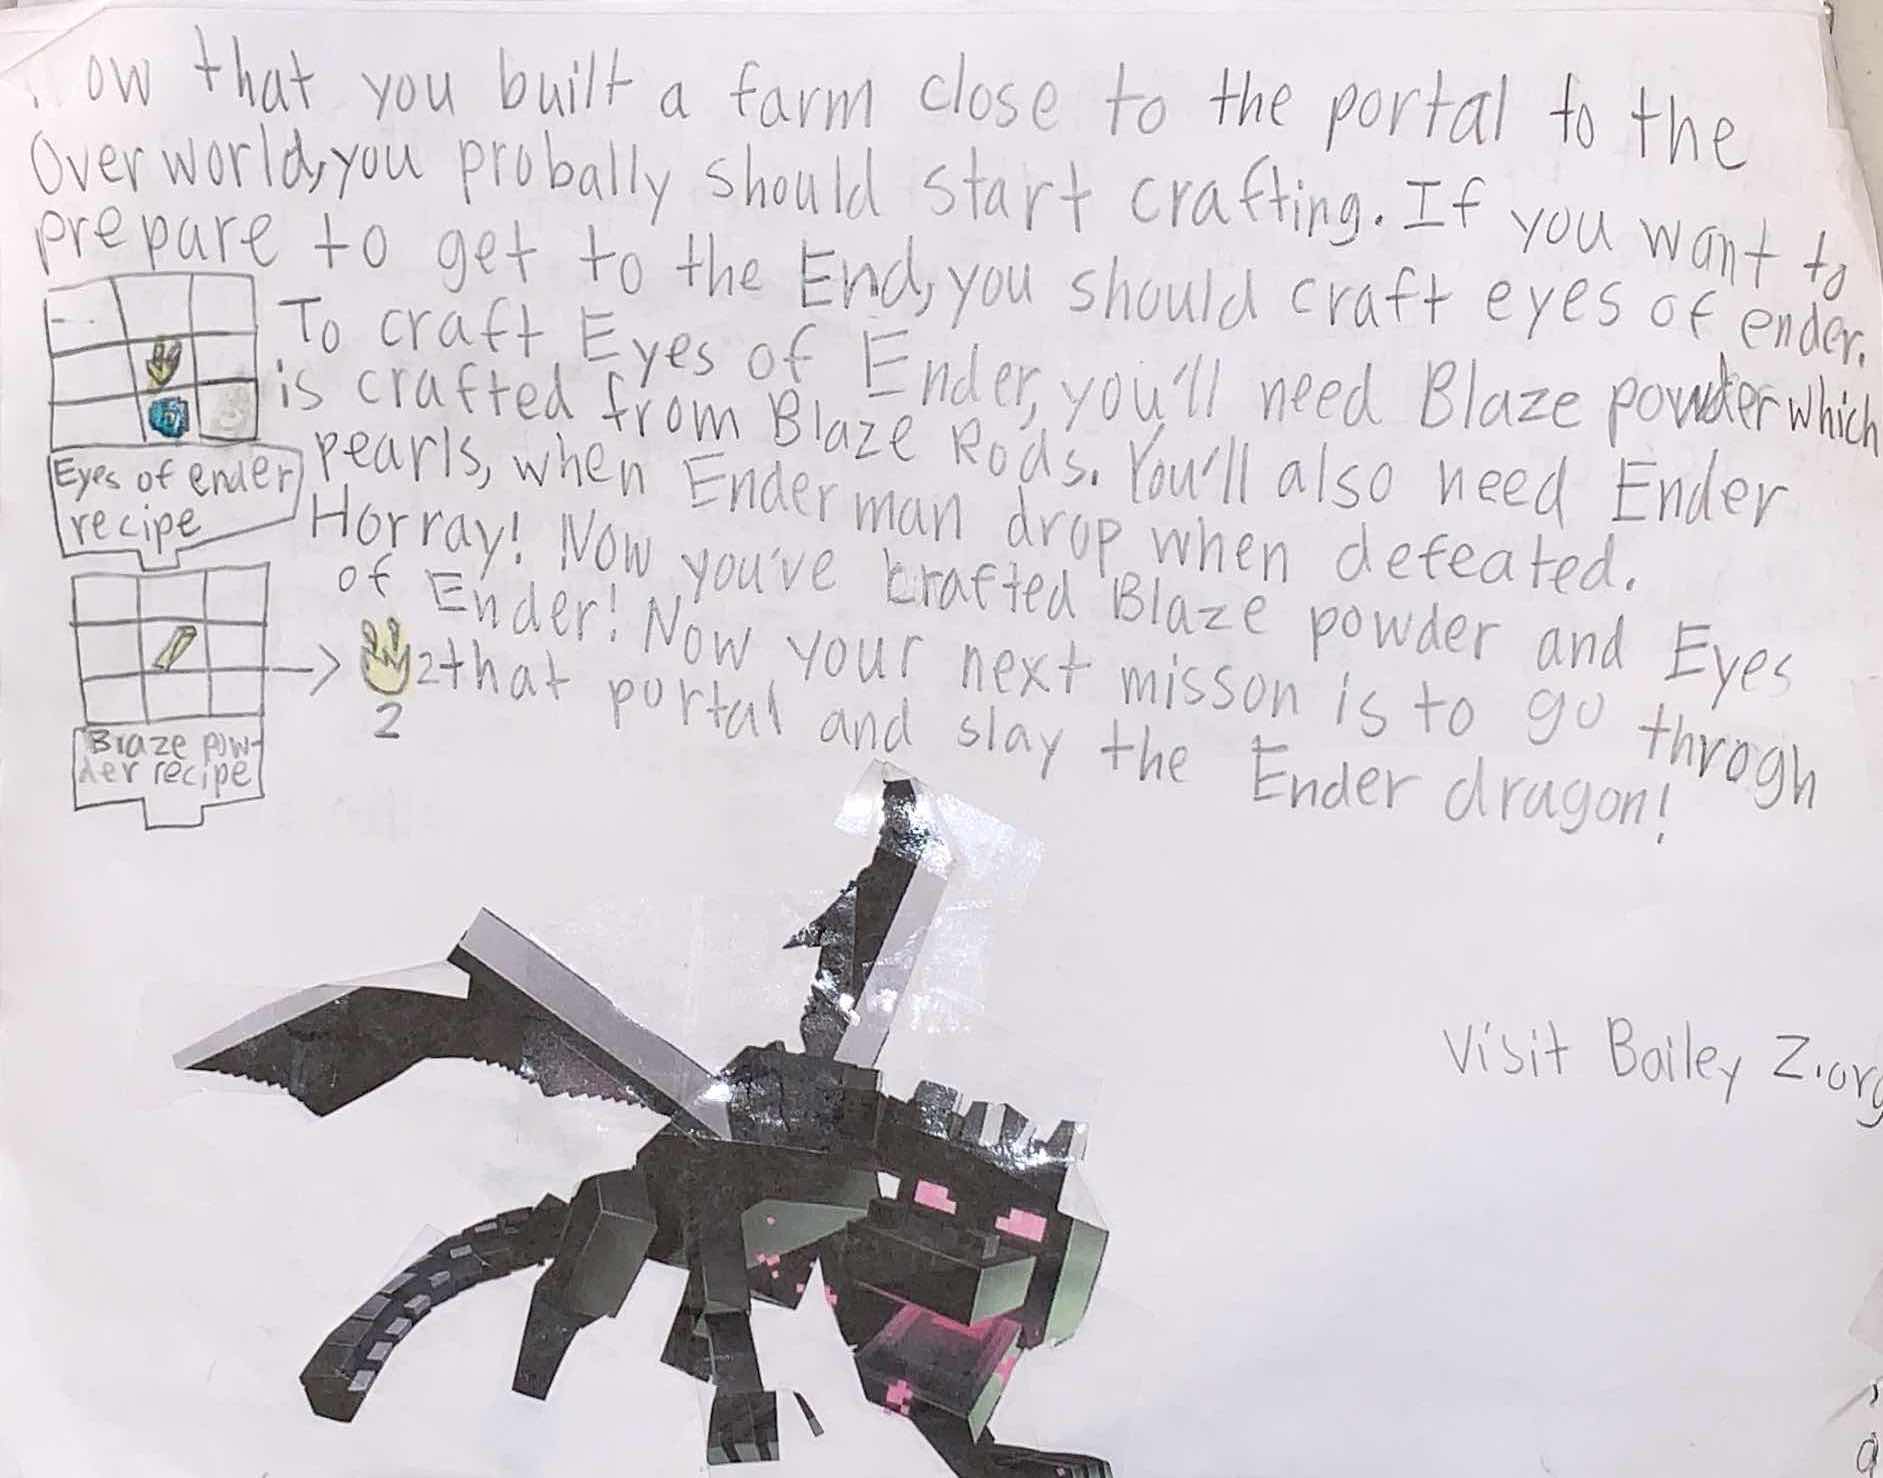 ow that you built a farm close to the portal to the
Overworld, you probally should start crafting. If you want to
prepare to get to the End, you should craft eyes of ender.
To craft Eyes of Ender, you'll need Blaze powder which
is crafted from Blaze Rods. You'll also need Ender
pearls, when Enderman drop when defeated.
Horray! Now you've crafted Blaze powder and Eyes
of Ender! Now your next misson is to go throgh
2 that portal and slay the Ender dragon!
Eyes of ender
recipe
2
Blaze pow-
der recipe
Visit Bailey Z.org